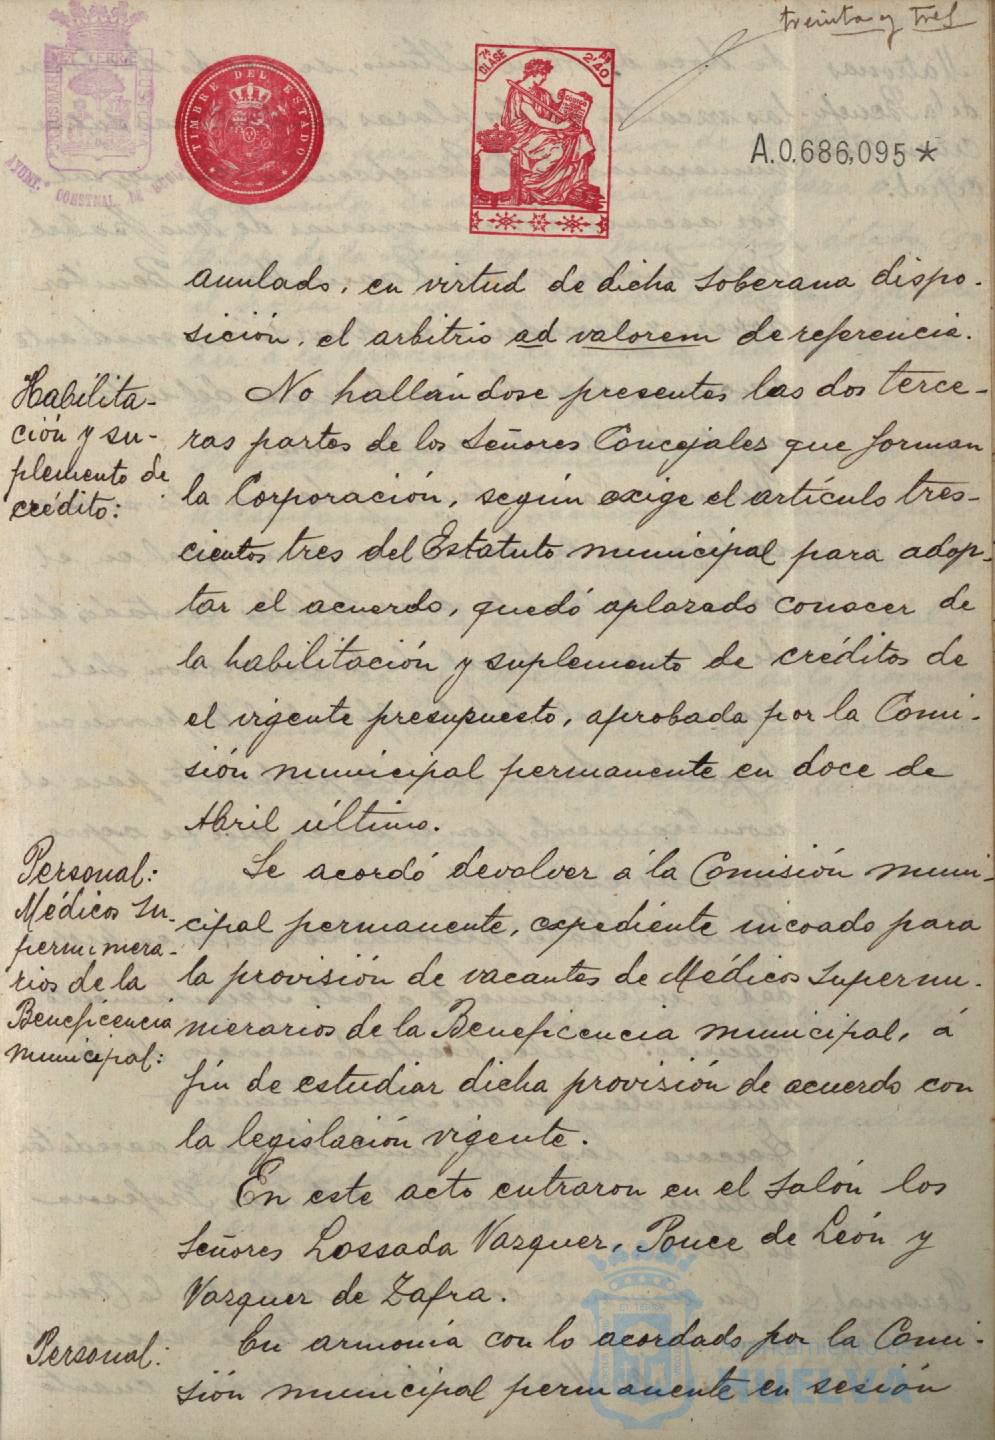 treinta y tres
TIMBRE DEL ESTADO
7ª CLASE
2'40
A.0.686,095*
anulado, en virtud de dicha soberana dispo-
sición, el arbitrio ad valorem de referencia.
Habilita-
ción y su-
plemento de
crédito:
No hallándose presentes las dos terce-
ras partes de los Señores Concejales que forman
la Corporación, según exige el artículo tres-
cientos tres del Estatuto municipal para adop-
tar el acuerdo, quedó aplazado conocer de
la habilitación y suplemento de créditos de
el vigente presupuesto, aprobada por la Comi-
sión municipal permanente en doce de
Abril último.
Personal:
Médicos Su-
pernumera-
rios de la
Beneficencia
municipal:
Se acordó devolver á la Comisión muni-
cipal permanente, expediente incoado para
la provisión de vacantes de Médicos Supernu-
merarios de la Beneficencia municipal, á
fin de estudiar dicha provisión de acuerdo con
la legislación vigente.
En este acto entraron en el salón los
Señores Lossada Vazquez, Ponce de León y
Vazquez de Zafra.
Personal:
En armonía con lo acordado por la Comi-
sión municipal permanente en sesión
Ayuntamiento de
HUELVA